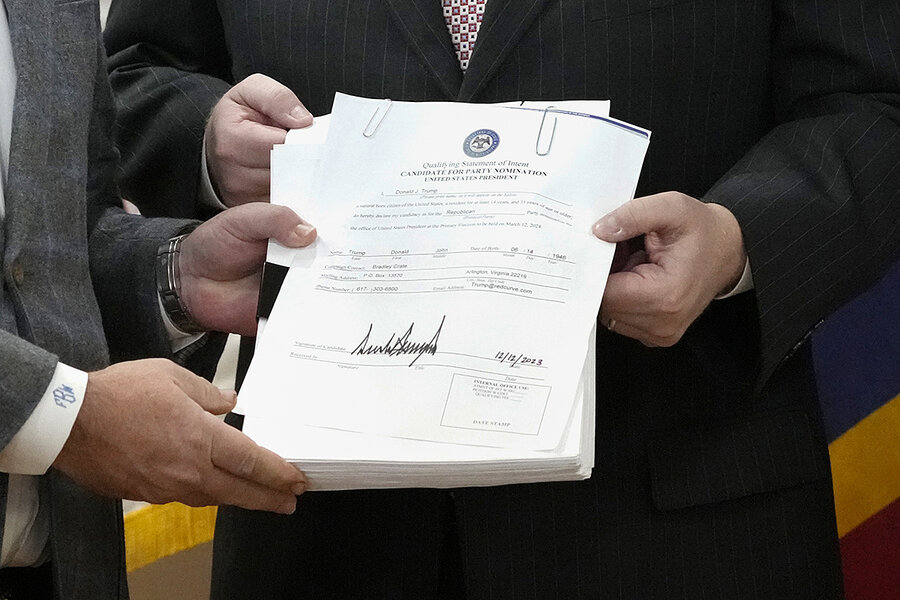 Qualifying Statement of Intent
CANDIDATE FOR PARTY NOMINATION
UNITED STATES PRESIDENT
I, Donald J. Trump
(Please print name as it will appear on the ballot)
a natural born citizen of the United States, a resident for at least 14 years, and 35 years of age or older,
do hereby declare my candidacy as for the Republican Party nomination
the office of United States President at the Primary Election to be held on March 12, 2024.
Name: Trump Donald John Date of Birth: 06 14 1946
First Month Day Year
Campaign Contact: Bradley Crate
Mailing Address: P.O. Box 13570 Arlington, Virginia 22219
Phone Number: 617- 303-6800 Email Address: Trump@redcurve.com
Signature of Candidate 12/12/2023
Received by Date
Signature Title
INTERNAL OFFICE USE:
QUALIFYING FEE
DATE STAMP